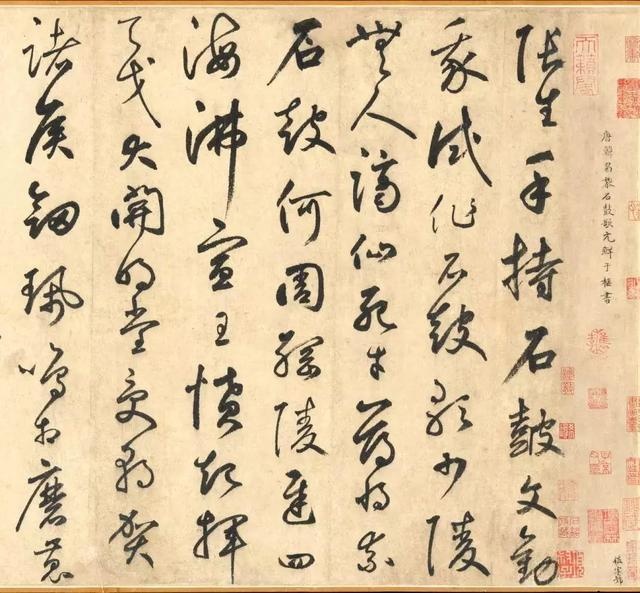 唐韓昌黎石鼓歌元鮮于樞書
張生手持石鼓文勸
我試作石鼓歌少陵
無人謫仙死才薄將柰
石鼓何周綱陵遲四
海沸宣王憤起揮
天戈大開明堂受朝賀
諸侯劒珮鳴相磨蒐